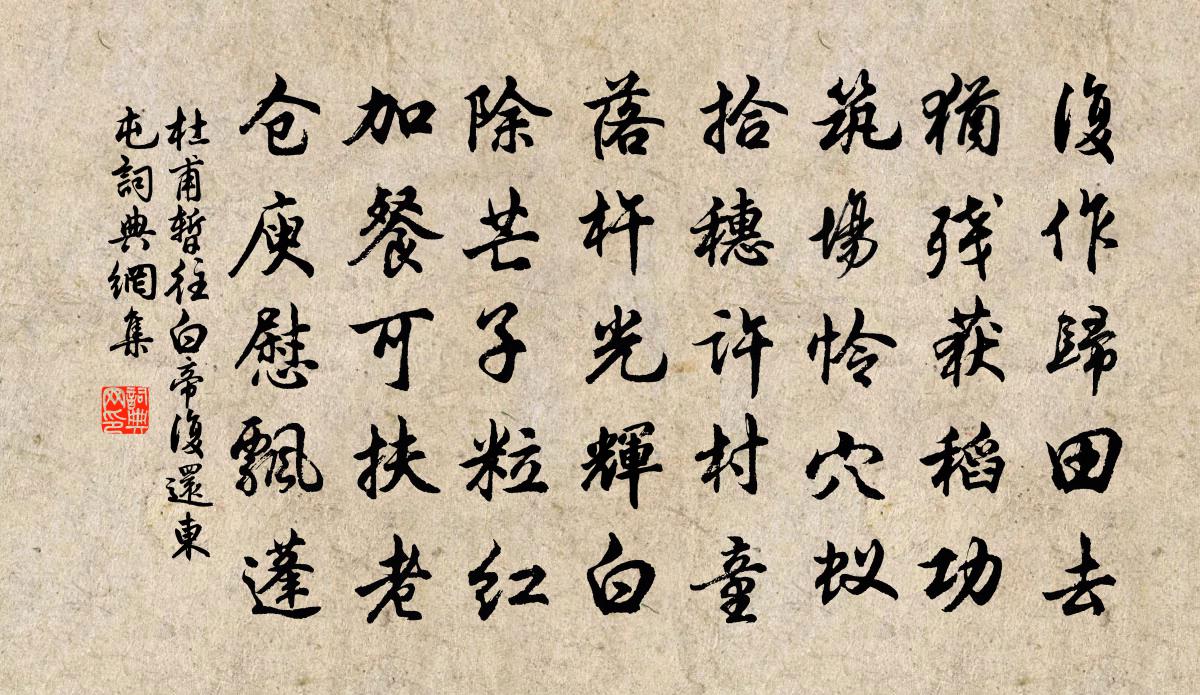 復作歸田去
猶残获稻功
筑場怜穴蚁
拾穗许村童
落杵光輝白
除芒子粒红
加餐可扶老
仓庾慰飄蓬
杜甫暫往白帝復還東
屯詞典網集
詞典
网印